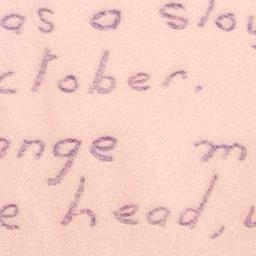 as a slow
ctober.
ange m
e head,